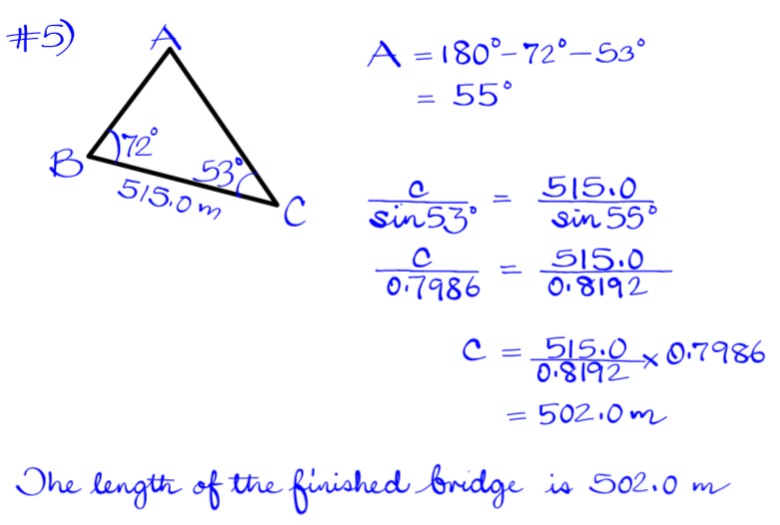 #5)
A
A = 180° - 72° - 53°
= 55°
72°
B
53°
515.0 m
C
c/sin 53° = 515.0/sin 55°
c/0.7986 = 515.0/0.8192
C = 515.0/0.8192 × 0.7986
= 502.0 m
The length of the finished bridge is 502.0 m